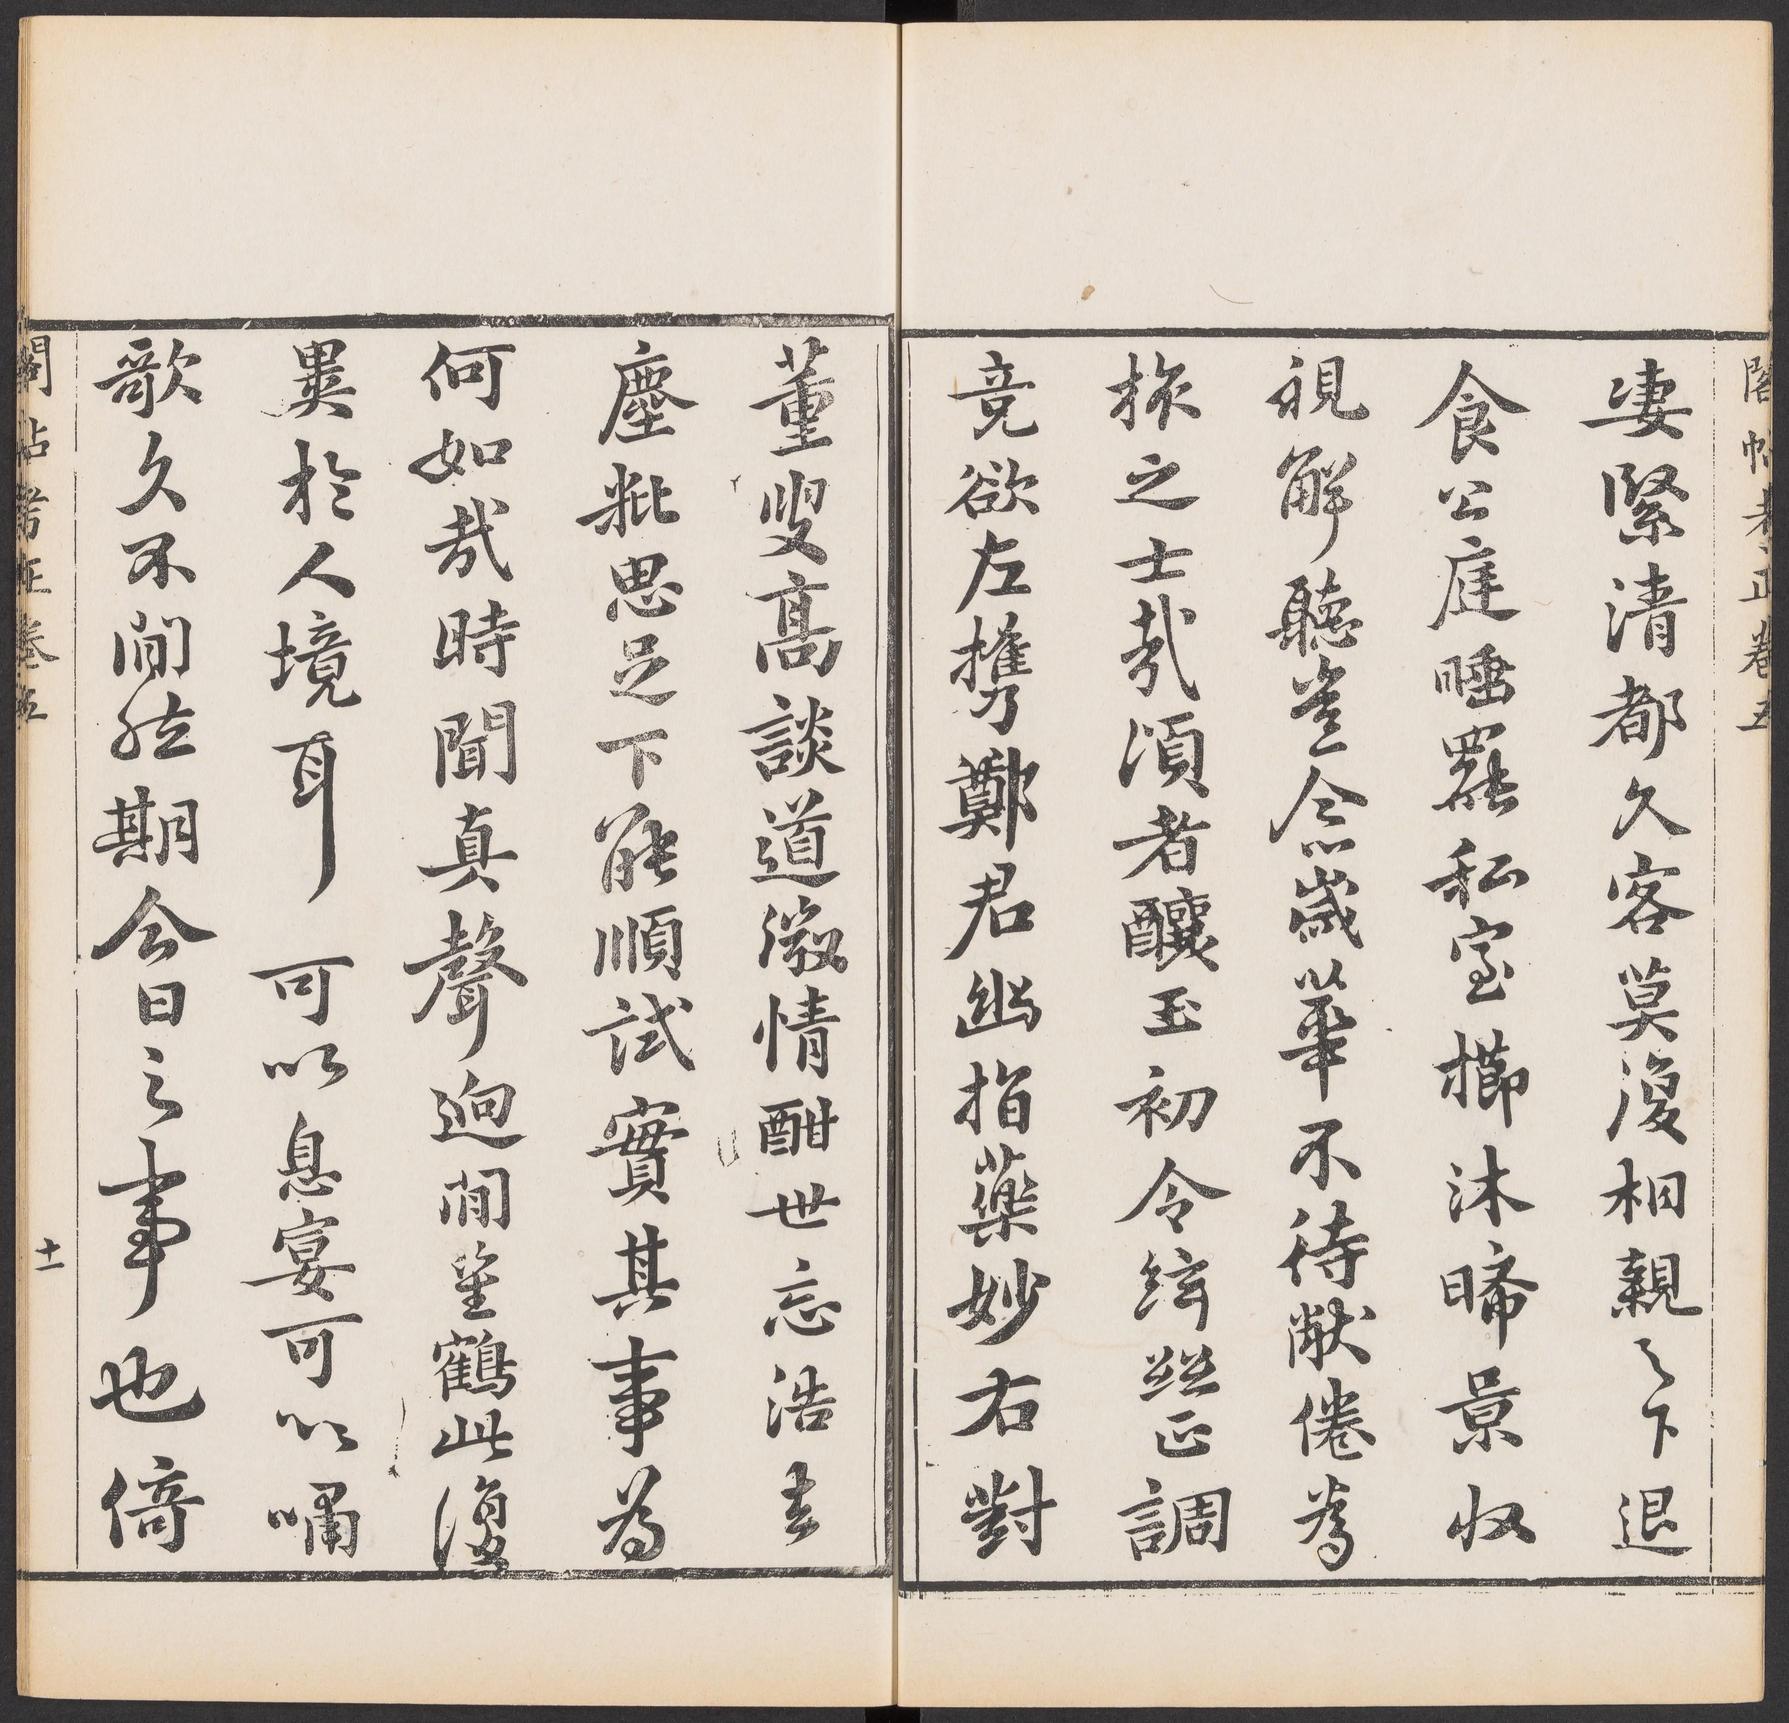 閣帖考正卷五
凄緊清都久客莫復相親之下退
食公庭睡罷私室櫛沐晞景收
視解聽豈念歲華不待猒倦為
旅之士哉須者釀玉初令絃丝正調
竟欲左攜鄭君幽指藥妙右對
董叟高談道微情酣世忘浩去
塵粃思足下能順試實其事為
何如哉時聞真聲迥間笙鶴此復
異於人境耳 可以息宴可以嘯
歌久不間絃期今日之事也倚
閣帖考正卷五
十一